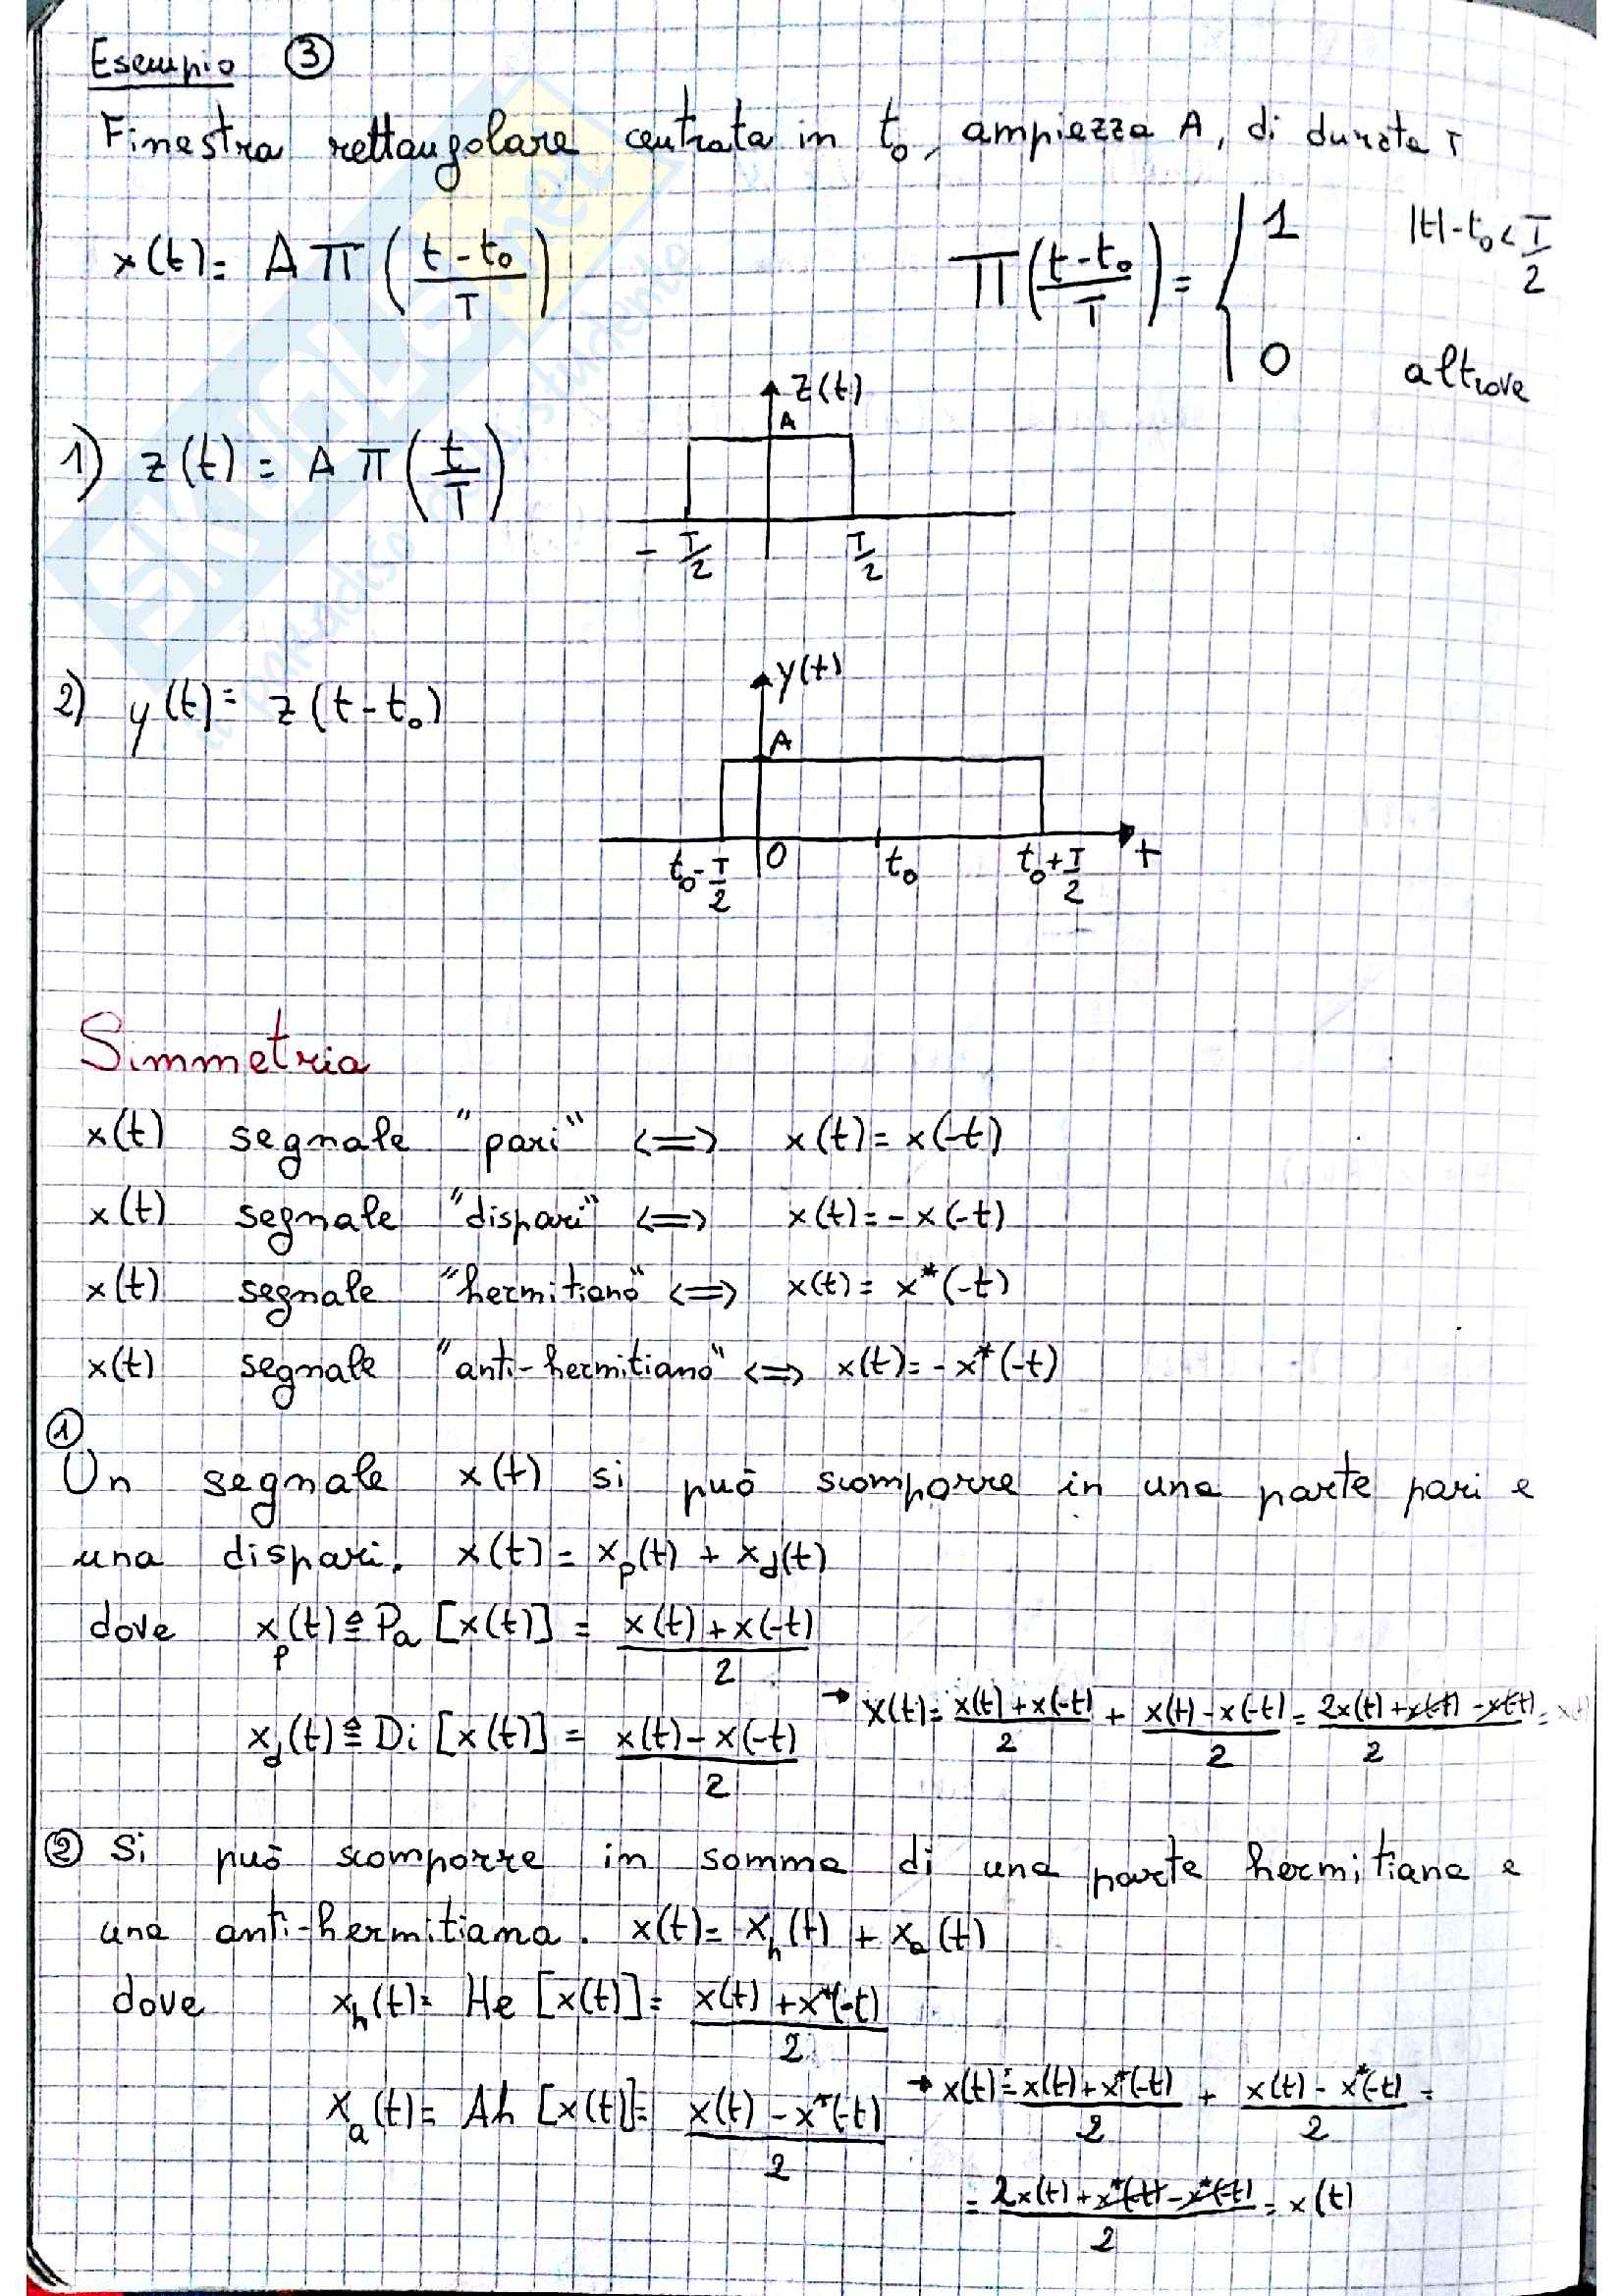 Esempio ③
Finestra rettangolare centrata in t₀, ampiezza A, di durata T
x(t) = A Π ( (t - t₀)/T )    Π( (t - t₀)/T ) = { 1    |t| - t₀ < T/2
0    altrove
z(t)
A
1) z(t) = A Π ( t/T )
- T/2    T/2
y(t)
2) y(t) = z(t - t₀)
A
t₀ - T/2    0    t₀    t₀ + T/2    t
Simmetria
x(t) segnale "pari" <=> x(t) = x(-t)
x(t) segnale "dispari" <=> x(t) = - x(-t)
x(t) segnale "hermitiano" <=> x(t) = x*(-t)
x(t) segnale "anti-hermitiano" <=> x(t) = - x*(-t)
①
Un segnale x(t) si può scomporre in una parte pari e
una dispari. x(t) = xₚ(t) + x_d(t)
dove xₚ(t) ≙ Pa [x(t)] = (x(t) + x(-t))/2
x_d(t) ≙ Di [x(t)] = (x(t) - x(-t))/2    → x(t) = (x(t) + x(-t))/2 + (x(t) - x(-t))/2 = (2x(t) + x(-t) - x(-t))/2 = x(t)
② Si può scomporre in somma di una parte hermitiana e
una anti-hermitiana. x(t) = x_h(t) + x_a(t)
dove x_h(t) = He [x(t)] = (x(t) + x*(-t))/2
x_a(t) = Ah [x(t)] = (x(t) - x*(-t))/2    → x(t) = (x(t) + x*(-t))/2 + (x(t) - x*(-t))/2 =
= (2x(t) + x*(-t) - x*(-t))/2 = x(t)